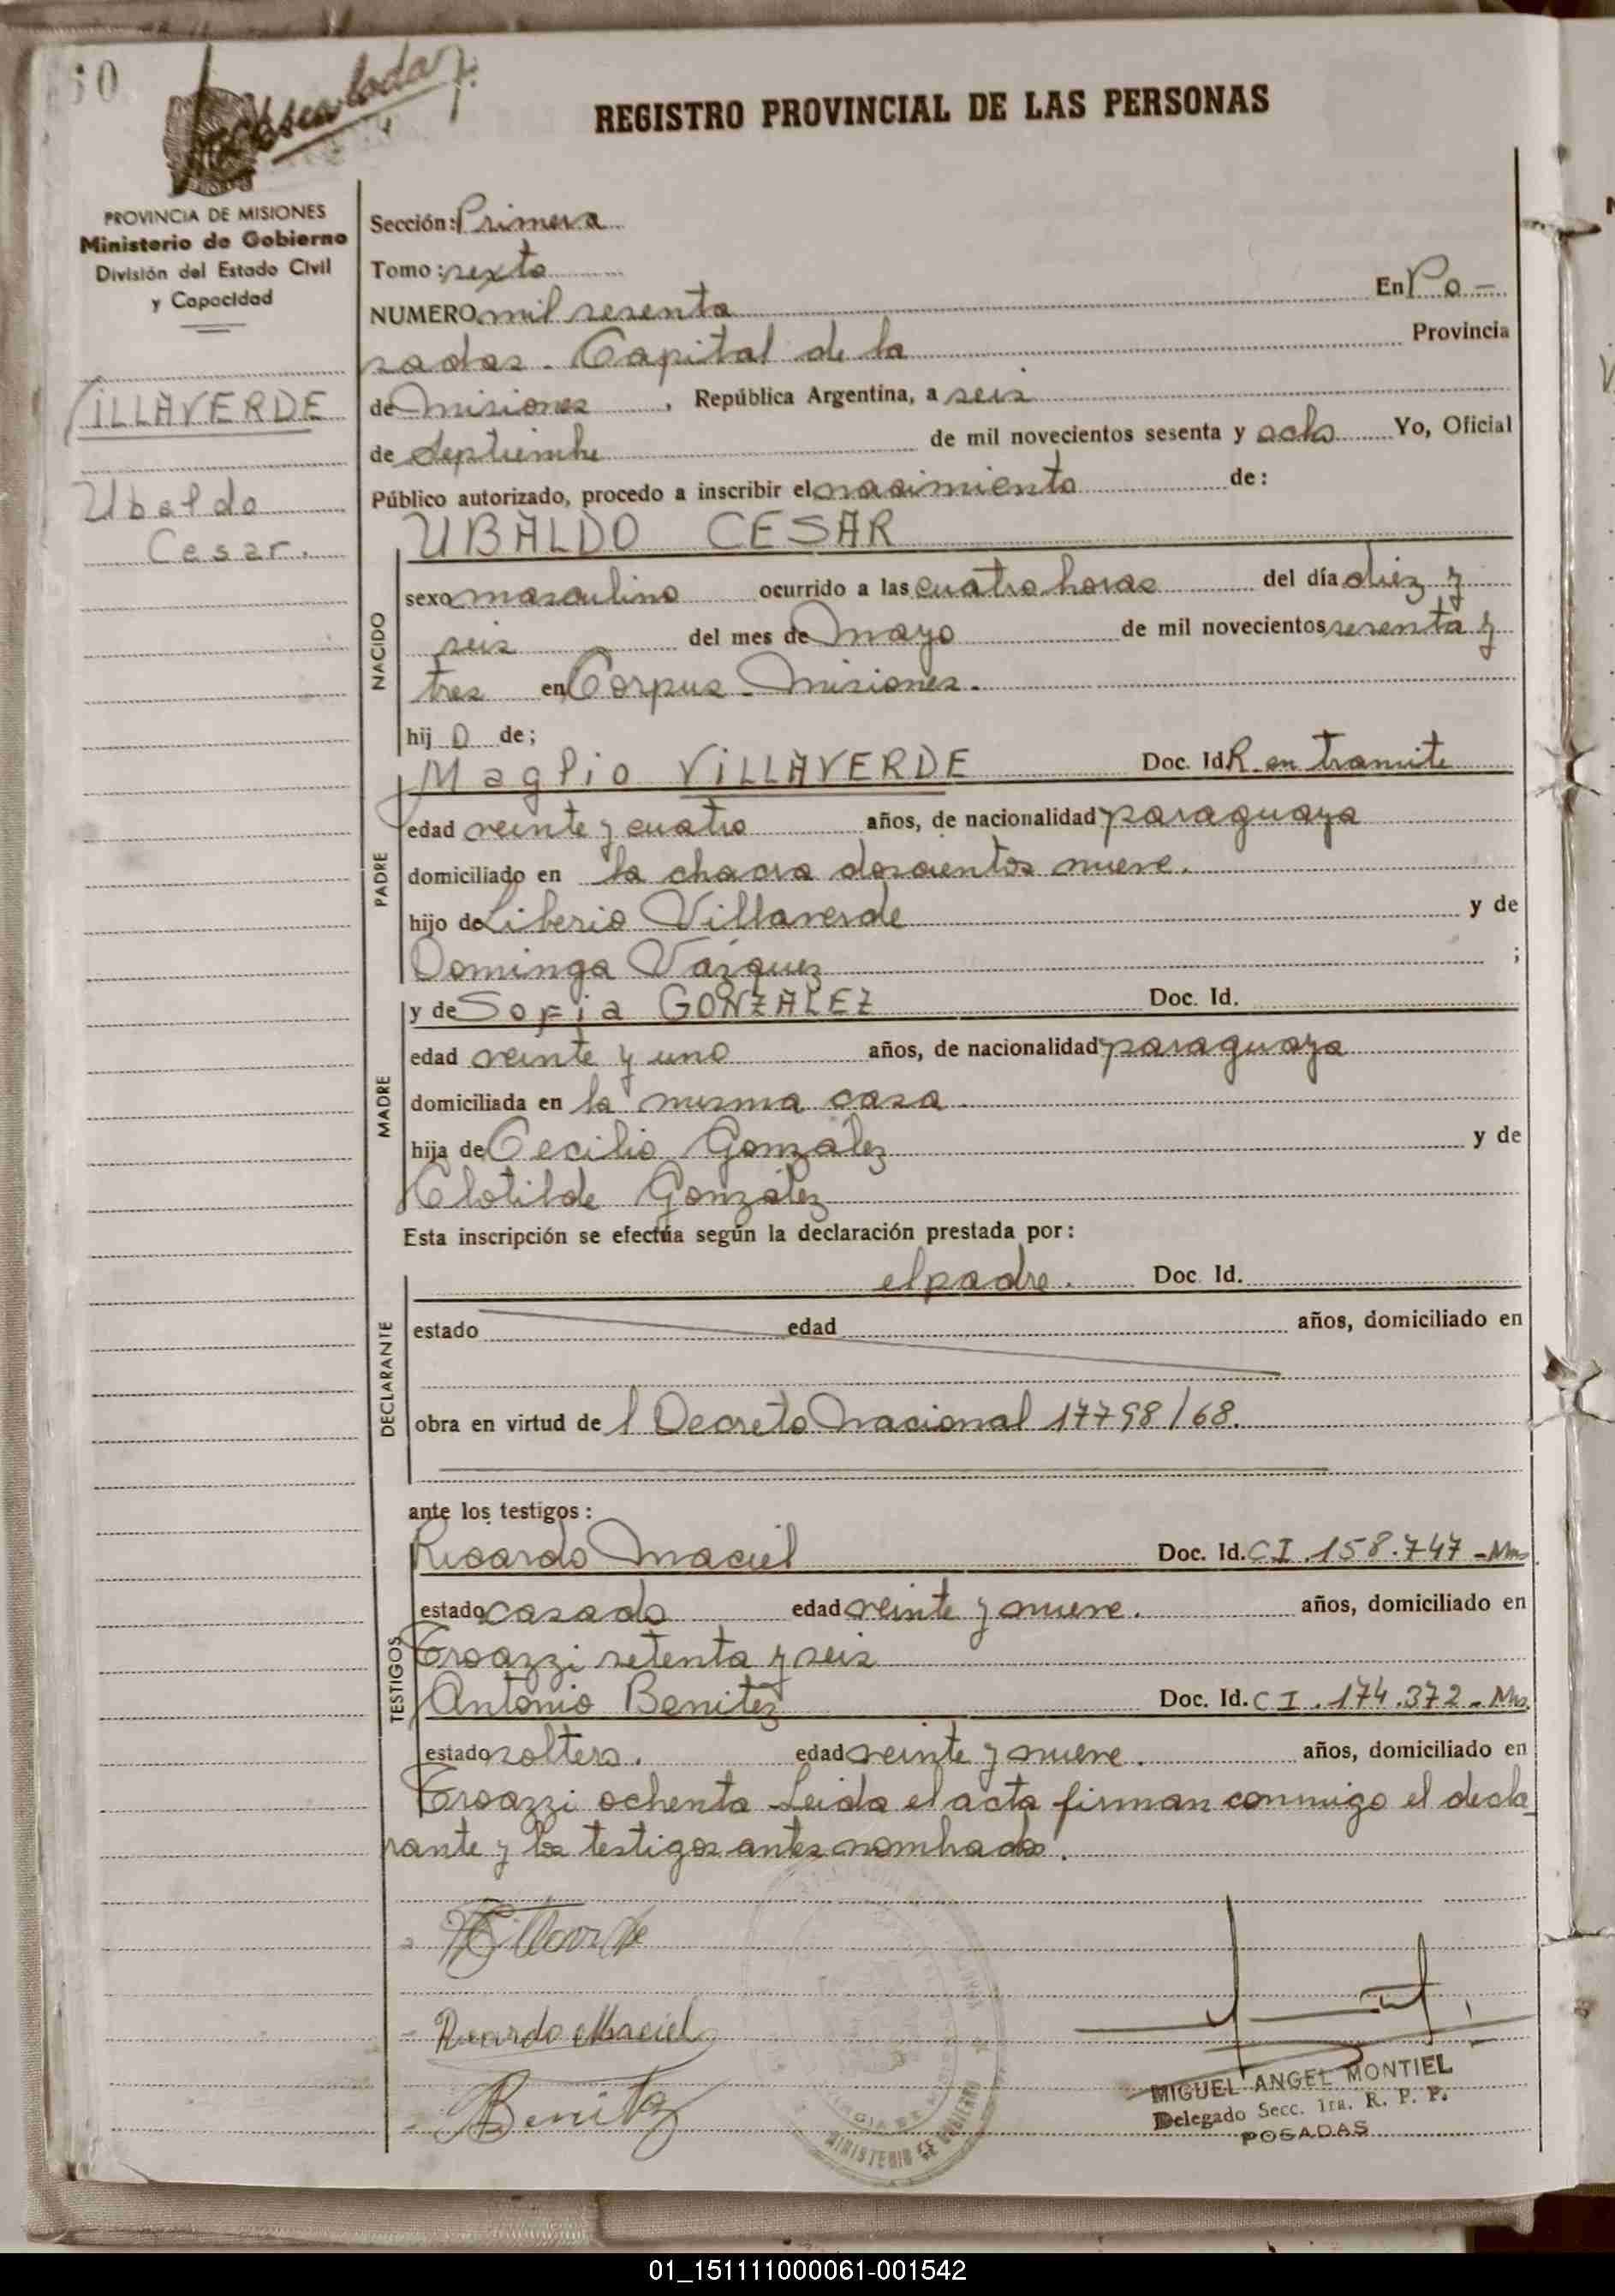 60
REGISTRO PROVINCIAL DE LAS PERSONAS
PROVINCIA DE MISIONES
Ministerio de Gobierno
División del Estado Civil
y Capacidad
VILLAVERDE
Ubaldo
Cesar.
Sección: Primera
Tomo: sexto
NUMERO mil sesenta En Po-
sadas. Capital de la Provincia
de Misiones, República Argentina, a seis
de Septiembre de mil novecientos sesenta y ocho Yo, Oficial
Público autorizado, procedo a inscribir el nacimiento de:
UBALDO CESAR
NACIDO
sexo masculino ocurrido a las cuatro horas del día diez y
seis del mes de Mayo de mil novecientos sesenta y
tres en Corpus. Misiones.
hij o de;
Maglio VILLAVERDE Doc. Id. R. en tramite
PADRE
edad veinte y cuatro años, de nacionalidad paraguaya
domiciliado en la chacra doscientos nueve.
hijo de Liberio Villaverde y de
Dominga Vázquez ;
y de Sofia GONZALEZ Doc. Id.
MADRE
edad veinte y uno años, de nacionalidad paraguaya
domiciliada en la misma casa.
hija de Cecilio González y de
Clotilde González
Esta inscripción se efectúa según la declaración prestada por:
el padre. Doc. Id.
DECLARANTE
estado edad años, domiciliado en
obra en virtud de l Decreto Nacional 17798/68.
ante los testigos:
Ricardo Maciel Doc. Id. CI. 158.747 - Mns
TESTIGOS
estado casado edad veinte y nueve. años, domiciliado en
Troazzi setenta y seis
Antonio Benitez Doc. Id. CI. 174.372 - Mns.
estado soltero. edad veinte y nueve. años, domiciliado en
Troazzi ochenta Leida el acta firman conmigo el decla
rante y los testigos antes nombrados.
Ricardo Maciel
Benitez
MINISTERIO DE GOBIERNO
MIGUEL ANGEL MONTIEL
Delegado Secc. 1ra. R. P. P.
POSADAS
01_151111000061-001542